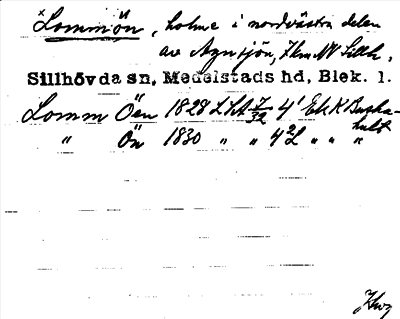 ×Lommön, holme i nordvästra delen
av Ayrsjön, 7 km NV Sillh.
Sillhövda sn. Medelstads hd, Blek. l.
Lomm Öen 1828 LSA 7/32 4' Ek K Buska-
hult
" Ön 1830 " " 4 2L " " "